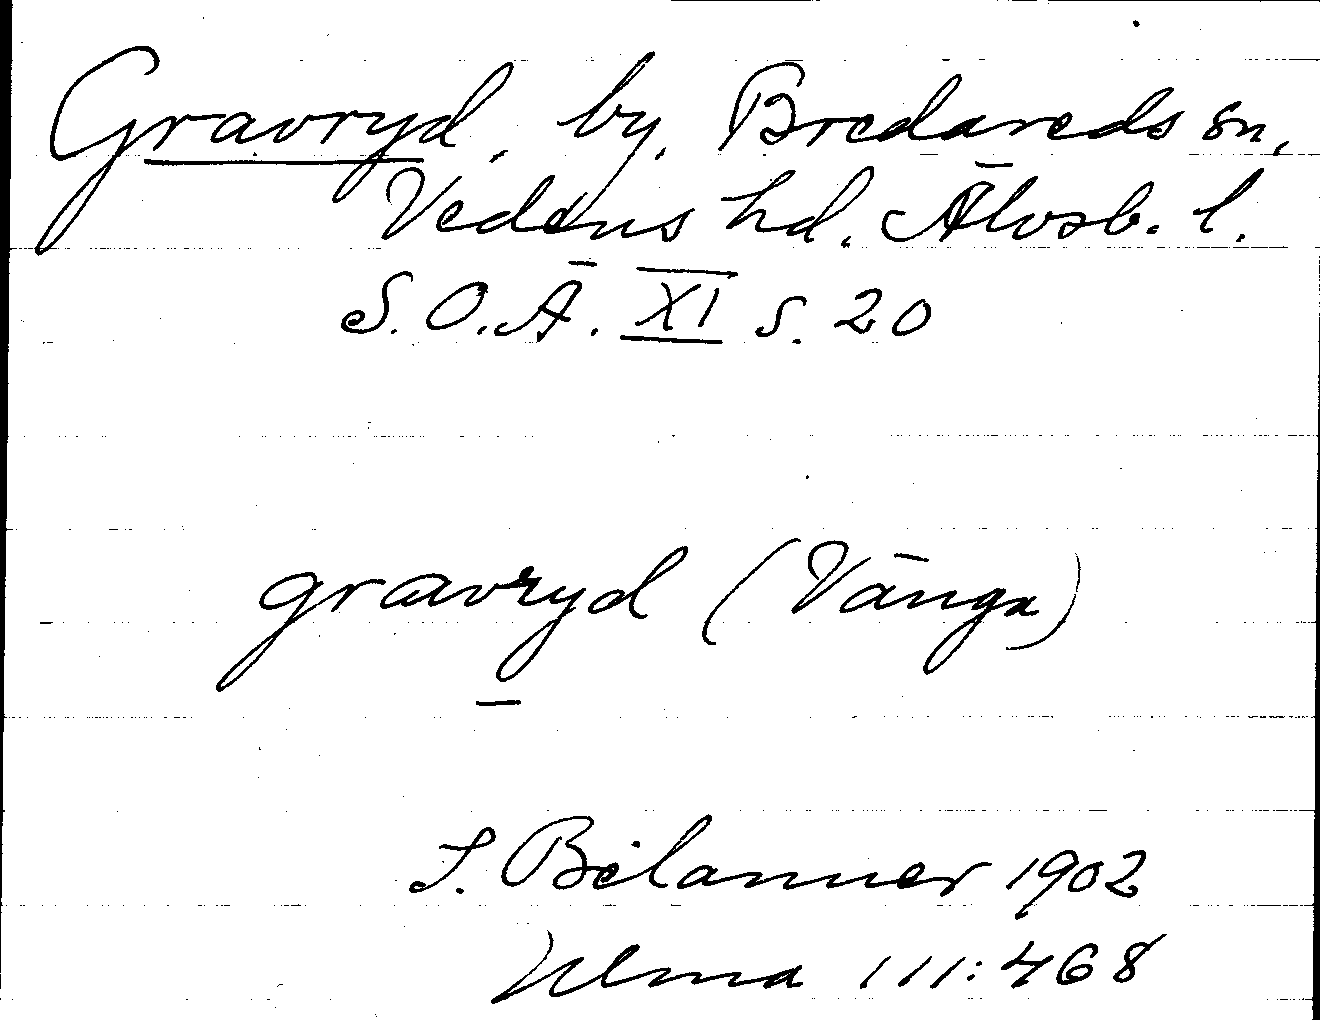 Gravryd, by, Bredareds sn,
Vedens hd. Älvsb. l.
S.O.Ä. XI s. 20
gravryd (Vånga)
S. Bélanner 1902
Ulma 111:468